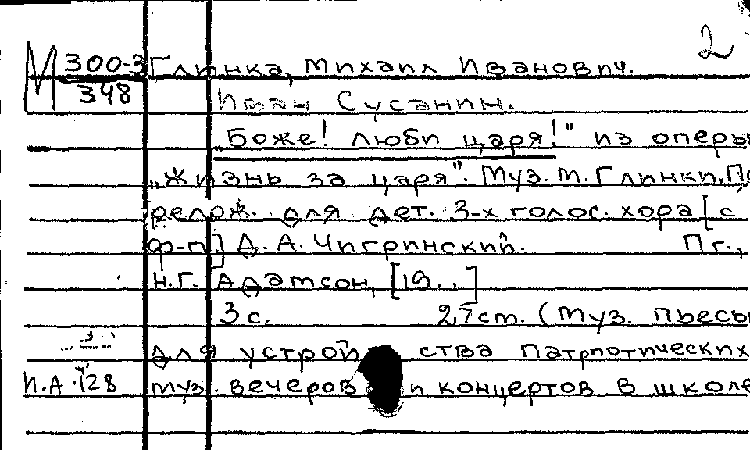 2
М 300-3 Глинка, Михаил Иванович.
348 Иван Сусанин.
Боже! люби царя!" из оперы
„Жизнь за царя". Муз. М. Глинки. Пе
релож. для дет. 3-х голос. хора [с
ф-п] Д. А. Чигринский. Пг.,
Н.Г. Адамсон, [19..]
3 с. 27 ст. (Муз. пьесы
для устройства патриотических
И.А. 128 муз. вечеров и концертов в школе